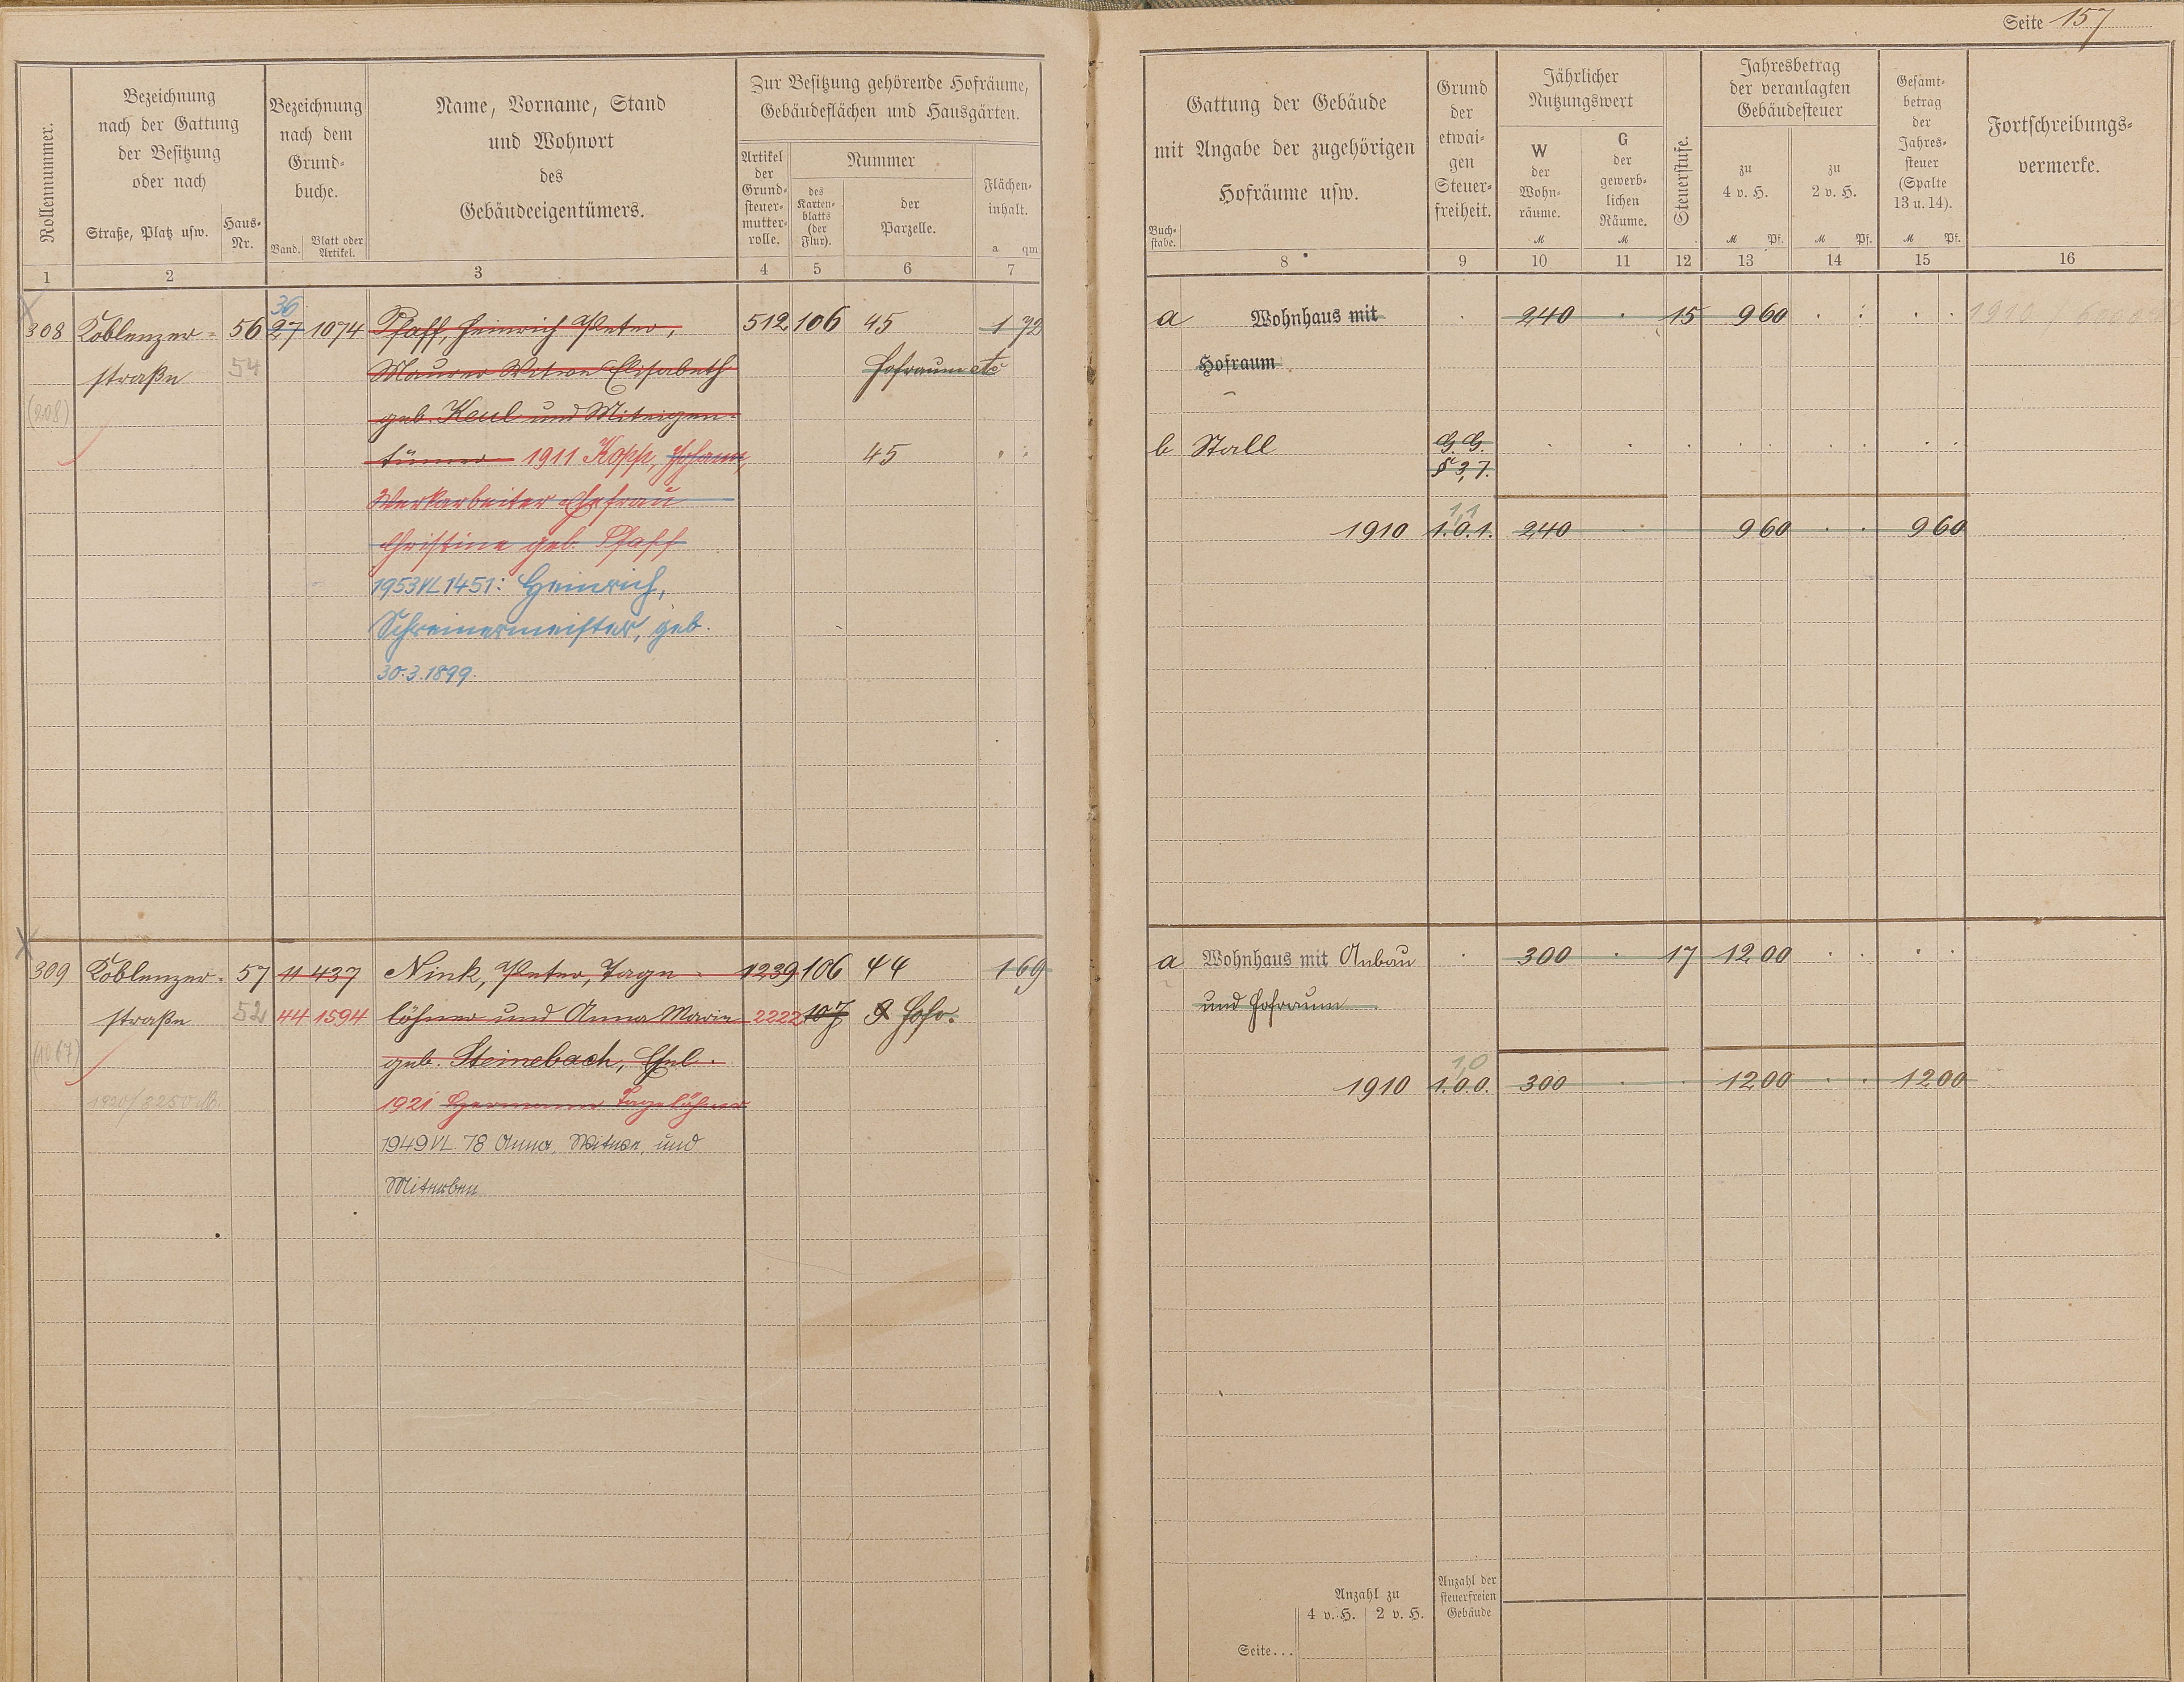 Seite 157
Rollennummer.
Bezeichnung
nach der Gattung
der Besitzung
oder nach
Straße, Platz usw.
Haus-
Nr.
Bezeichnung
nach dem
Grund-
buche.
Band.
Blatt oder
Artikel.
Name, Vorname, Stand
und Wohnort
des
Gebäudeeigentümers.
Zur Besitzung gehörende Hofräume,
Gebäudeflächen und Hausgärten.
Artikel
der
Grund-
steuer-
mutter-
rolle.
Nummer
des
Karten-
blatts
(der
Flur).
der
Parzelle.
Flächen-
inhalt.
a qm
1 2 3 4 5 6 7
36
308 Koblenzer- 56 27 1074 Pfaff, Heinrich Peter, 512 106 45 1 72
straße 54 Maurer Witwe Elisabeth Hofraum etc
(208) geb. Keul und Miteigen-
tümer 1911 Kopp, Johann, 45
Werkarbeiter Ehefrau
Christine geb. Pfaff
1953 VL 1451: Heinrich,
Schreinermeister, geb.
30.3.1899.
309 Koblenzer- 57 11 437 Nink, Peter, Tage- 1239 106 44 1 69
straße 52 44 1594 löhner und Anna Maria 2222 107 9 Hofr.
geb. Steinebach, Ehel.
1920/8250 M. 1921 Hermann Tagelöhner
1949 VL. 78 Anna, Witwe, und
Miterben
Gattung der Gebäude
mit Angabe der zugehörigen
Hofräume usw.
Buch-
stabe.
Grund
der
etwai-
gen
Steuer-
freiheit.
Jährlicher
Nutzungswert
W
der
Wohn-
räume.
M
G
der
gewerb-
lichen
Räume.
M
Steuerstufe.
Jahresbetrag
der veranlagten
Gebäudesteuer
zu
4 v. H.
M Pf.
zu
2 v. H.
M Pf.
Gesamt-
betrag
der
Jahres-
steuer
(Spalte
13 u. 14).
M Pf.
Fortschreibungs-
vermerke.
8 9 10 11 12 13 14 15 16
a Wohnhaus mit 240 15 9 60 1910
Hofraum
b Stall G. G.
§ 3,7.
1,1
1910 1.0.1. 240 9 60 9 60
a Wohnhaus mit Anbau 300 17 12 00
und Hofraum
1,0
1910 1.0.0. 300 12 00 12 00
Anzahl zu
4 v. H. 2 v. H.
Anzahl der
steuerfreien
Gebäude
Seite...